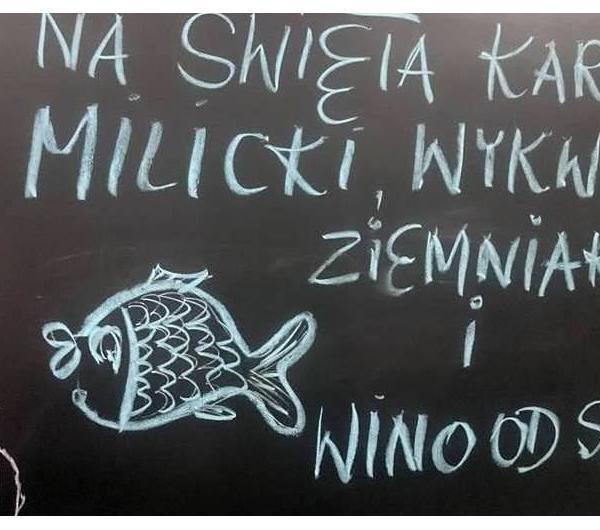 NA ŚWIĘTA KAR
MILICKI WYKW
ZIEMNIAK
i
WINO OD S